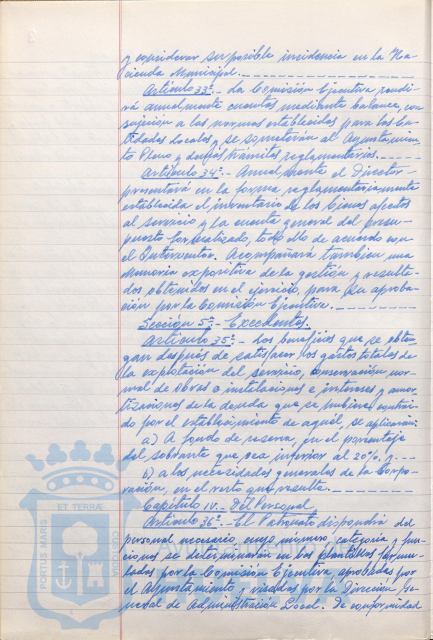 y considerar su posible incidencia en la Ha-
cienda Municipal.
Artículo 33º.- La Comisión Ejecutiva rendi-
rá anualmente cuentas mediante balance, con
sujeción a las normas establecidas para las En-
tidades Locales y se someterán al Ayuntamien-
to Pleno y demás trámites reglamentarios.
Artículo 34º.- Anualmente el Director
presentará en la forma reglamentariamente
establecida el inventario de los bienes afectos
al servicio y la cuenta general del presu-
puesto formalizado, todo ello de acuerdo con
el Interventor. Acompañará también una
Memoria expositiva de la gestión y resulta-
dos obtenidos en el ejercicio, para su aproba-
ción por la Comisión Ejecutiva.
Sección 5ª.- Excedentes.
Artículo 35º.- Los beneficios que se obten-
gan después de satisfacer los gastos totales de
la explotación del servicio, conservación nor-
mal de obras e instalaciones e intereses y amor-
tizaciones de la deuda que se hubiere contraí-
do por el establecimiento de aquél, se aplicarán:
a) A fondo de reserva, en el porcentaje
del sobrante que sea inferior al 20%. y
b) a las necesidades generales de la Corpo-
ración, en el resto que resulte.
Capítulo IV.- Del Personal
Artículo 36º.- El Patronato dispondrá del
personal necesario cuyo número, categoría y fun-
ciones se determinarán en las plantillas formu-
ladas por la Comisión Ejecutiva, aprobadas por
el Ayuntamiento y visadas por la Dirección Ge-
neral de Administración Local. De conformidad
ET TERRA
PORTUS MARIS
CUSTODIA